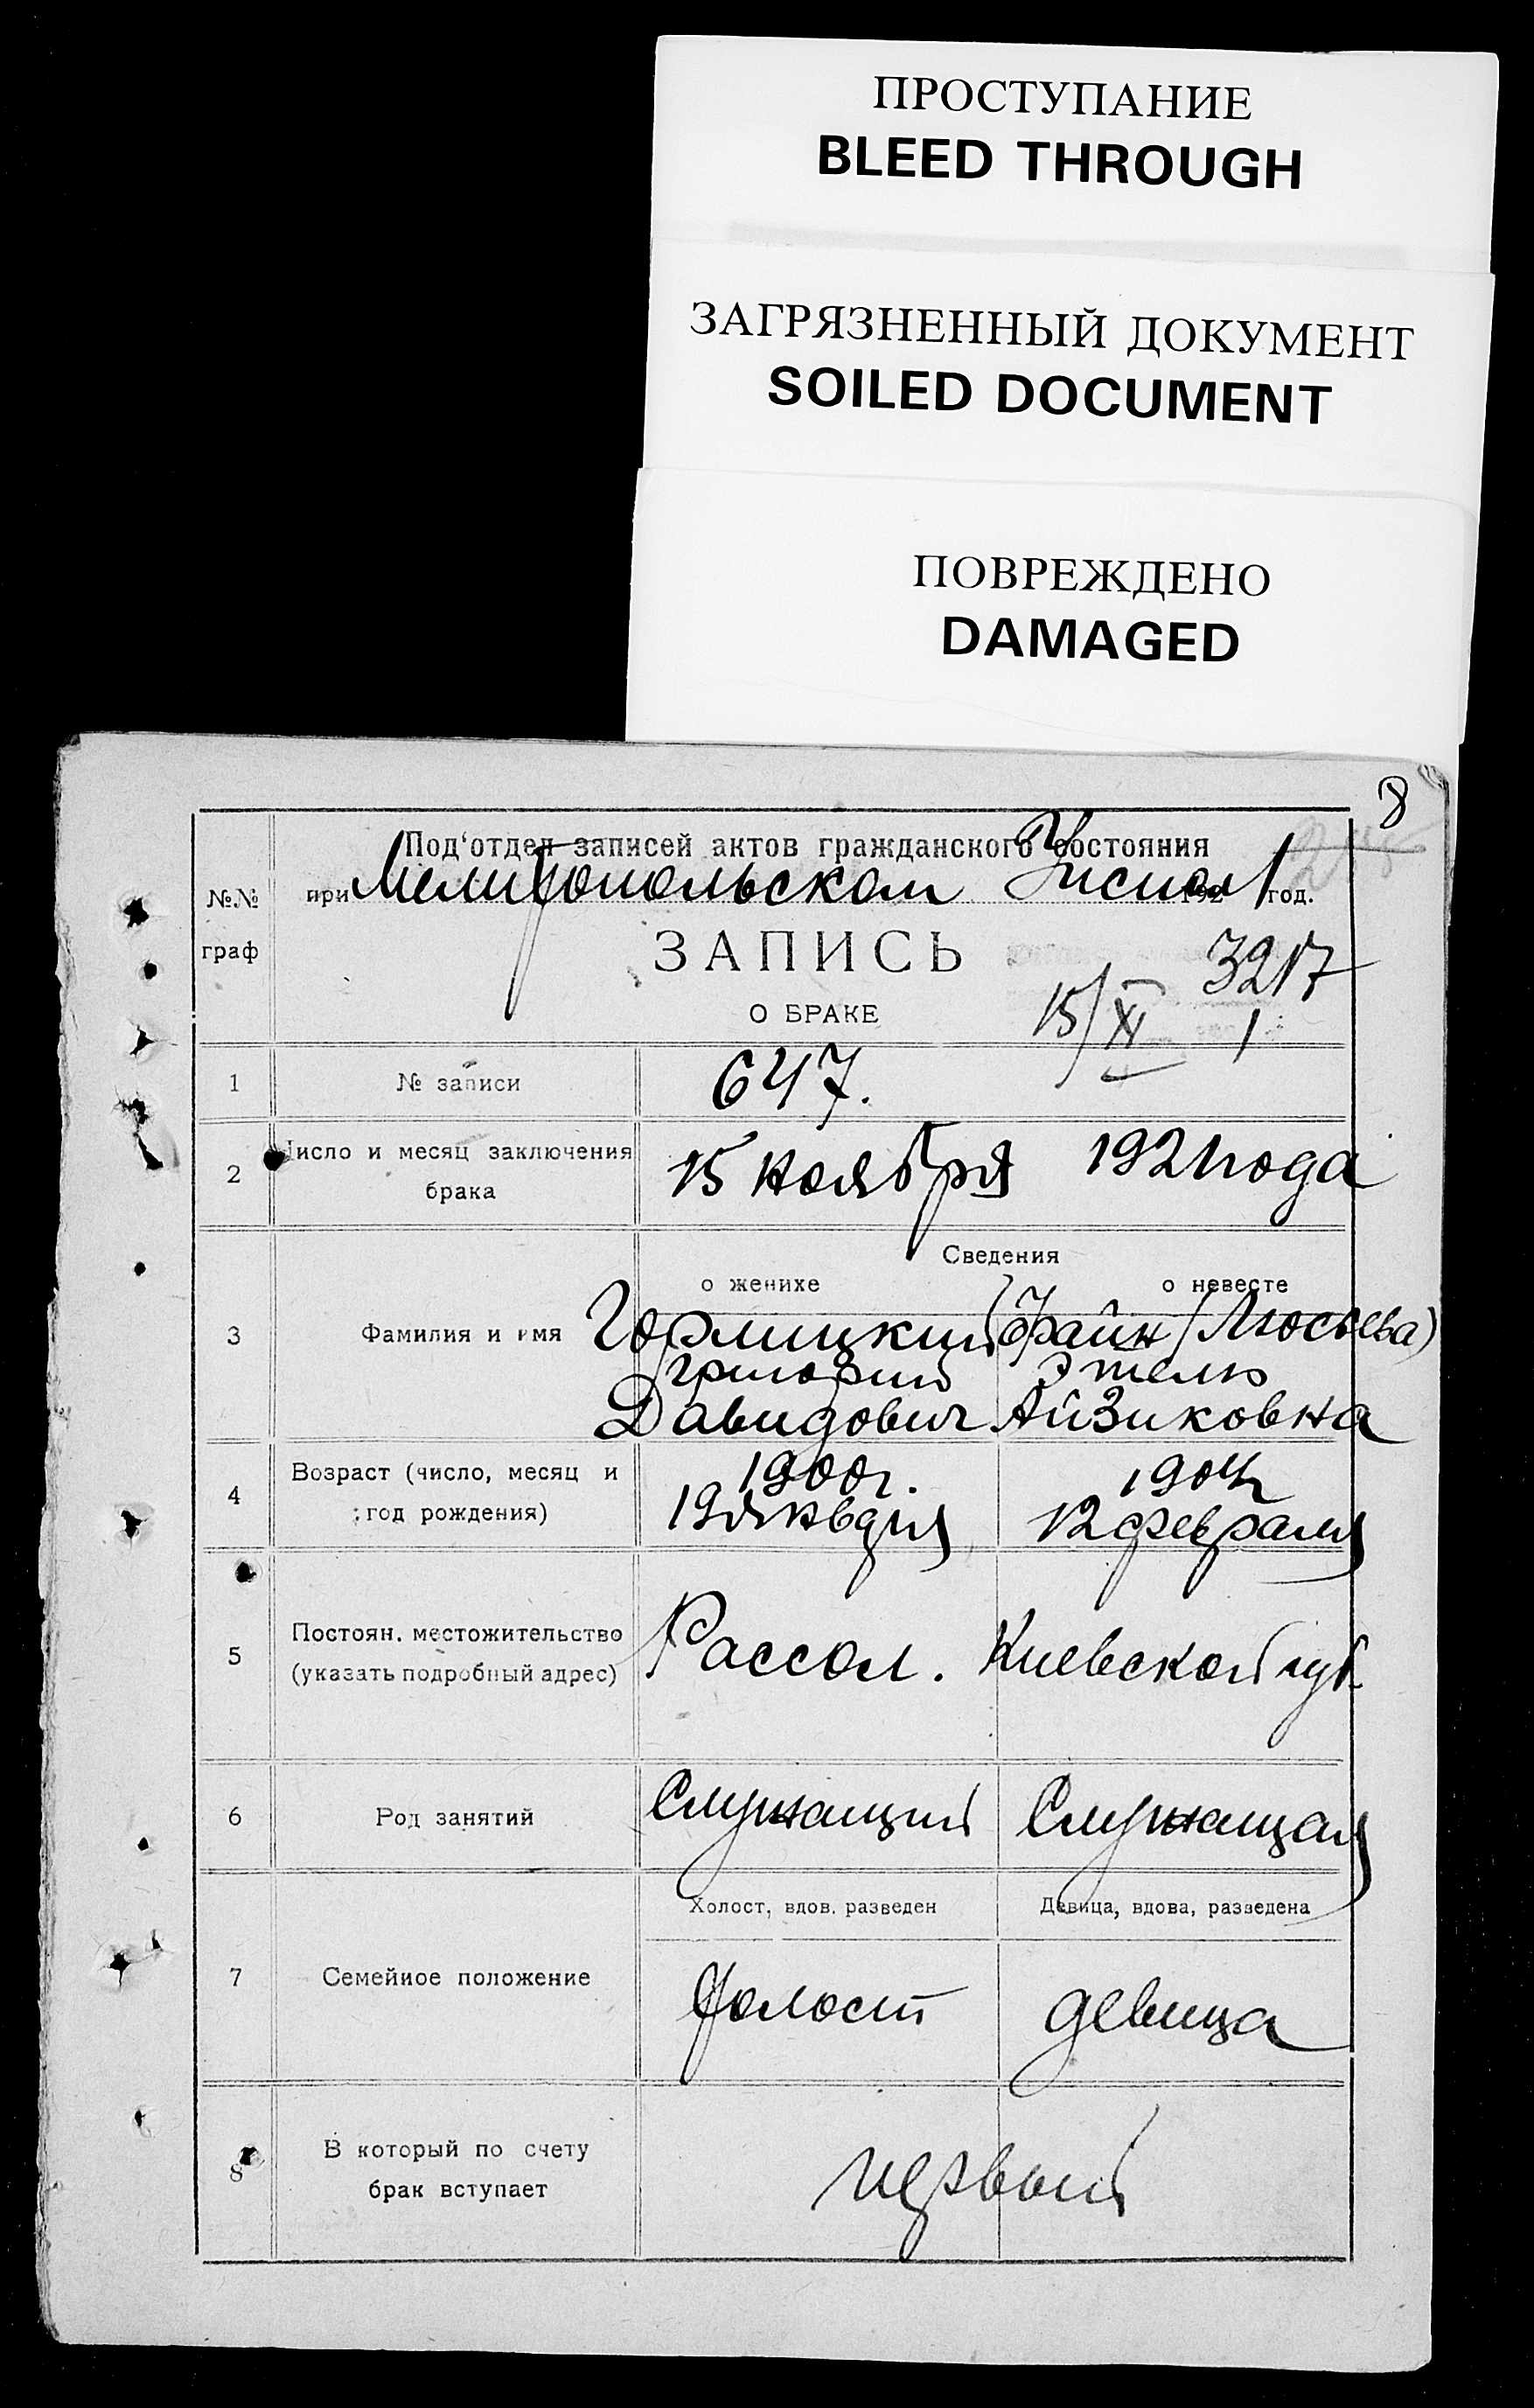 ПРОСТУПАНИЕ
BLEED THROUGH
ЗАГРЯЗНЕННЫЙ ДОКУМЕНТ
SOILED DOCUMENT
ПОВРЕЖДЕНО
DAMAGED
8
Под'отдел записей актов гражданского состояния
№№ граф
при Мелитопольском 1921 год.
ЗАПИСЬ
О БРАКЕ
3217
15/XI 1
1 № записи 647.
2 Число и месяц заключения 15 ноября 1921 года
брака
Сведения
о женихе о невесте
3 Фамилия и имя Горлицкий Файн (Люсьева)
Григорий Этель
Давидович Айзиковна
4 Возраст (число, месяц и 1900г.
год рождения) 19 января 12 февраля
5 Постоян. местожительство
(указать подробный адрес) Киевской губ
6 Род занятий Служащий Служащая
Холост, вдов. разведен Девица, вдова, разведена
7 Семейное положение Холост девица
8 В который по счету
брак вступает первый